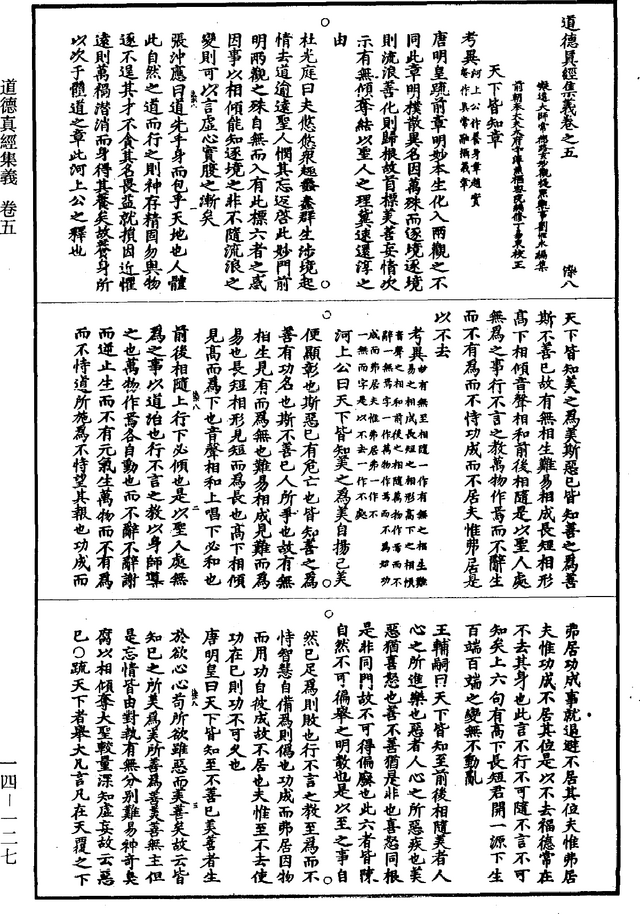 道德真經集義卷之五
染八
凝遠大師常德路玄妙觀提點觀事劉惟永編集
前朝奉大夫太府寺簿兼樞密院編修丁易東校正
天下皆知章
考異河上公作養身章趙實
菴作真常融攝義章
唐明皇疏前章明妙本生化入兩觀之不
同此章明樸散異名因萬殊而逐境逐境
則流浪善化則歸根故首標美善妄情次
示有無傾奪結以聖人之理冀速還淳之
由
杜光庭曰夫悠悠衆趣蠢蠢群生涉境起
情去道逾遠聖人憫其忘返啓此妙門前
明兩觀之殊自無而入有此標六者之惑
因事以相傾能知逐境之非不隨流浪之
變則可以言虛心實腹之漸矣
張沖應曰道先乎身而包乎天地也人體
此自然之道而行之則神存精固易與物
逐不逞其才不貪其名畏盆就損因近懼
遠則萬禍潛消而身得其養矣故養身所
以次于體道之章此河上公之釋也
天下皆知美之爲美斯惡已皆知善之爲善
斯不善已故有無相生難易相成長短相形
高下相傾音聲相和前後相隨是以聖人處
無爲之事行不言之教萬物作焉而不辭生
而不有爲而不恃功成而不居夫惟弗居是
以不去
考異
河上公曰天下皆知美之爲美自揚己美
使顯彰也斯惡已有危亡也皆知善之爲
善有功名也斯不善已人所爭也故有無
相生見有而爲無也難易相成見難而爲
易也長短相形見短而爲長也高下相傾
見高而爲下也音聲相和上唱下必和也
前後相隨上行下必傾也是以聖人處無
爲之事以道治也行不言之教以身師導
之也萬物作焉各自動也而不辭不辭謝
而逆止生而不有元氣生萬物而不有爲
而不恃道所施爲不恃望其報也功成而
弗居功成事就退避不居其位夫惟弗居
夫惟功成不居其位是以不去福德常在
不去其身也此言不行不可隨不言不可
知矣上六句有高下長短君開一源下生
百端百端之變無不動亂
王輔嗣曰天下皆知至前後相隨美者人
心之所進樂也惡者人心之所惡疾也美
惡猶喜怒也善不善猶是非也喜怒同根
是非同門故不可得偏廢也此六者皆陳
自然不可偏舉之明數也是以至之事自
然已足爲則敗也行不言之教至爲而不
恃智慧自備爲則僞也功成而弗居因物
而用功自彼成故不居也夫惟至不去使
功在已則功不可久也
唐明皇曰天下皆知至不善已美善者生
於欲心心苟所欲雖惡而美善矣故云皆
知已之所美爲美所善爲善美善無主但
是忘情皆由對執有無分別難易神奇臭
腐以相傾奪大聖較量深知虛妄故云惡
已○疏天下者舉大凡言凡在天覆之下
道德真經集義 卷五
一四—一二七